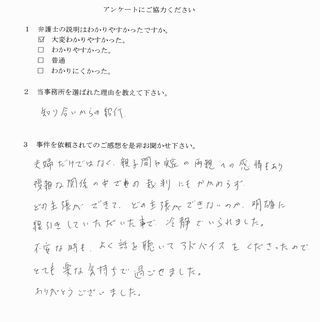 アンケートにご協力ください
1 弁護士の説明はわかりやすかったですか。
☑ 大変わかりやすかった。
□ わかりやすかった。
□ 普通
□ わかりにくかった。
2 当事務所を選ばれた理由を教えて下さい。
知り合いからの紹介
3 事件を依頼されてのご感想を是非お聞かせ下さい。
夫婦だけではなく、親子間や嫁の両親への感情もあり
複雑な関係の中での裁判にもかかわらず
どの主張ができて、どの主張ができないのか、明確に
線引きしていただいた事で、冷静でいられました。
不安な時も、よく話を聴いてアドバイスをくださったので
とても楽な気持ちで過ごせました。
ありがとうございました。